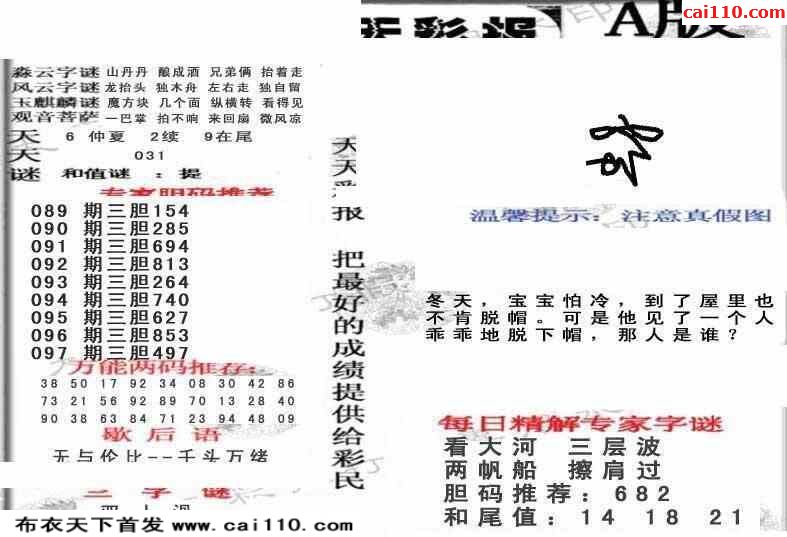 A版
cai110.com
淼云字谜 山丹丹 酿成酒 兄弟俩 抬着走
风云字谜 龙抬头 独木舟 左右走 独自留
玉麒麟谜 魔方块 几个面 纵横转 看得见
观音菩萨 一巴掌 拍不响 来回扇 微风凉
天 6 仲夏 2续 9在尾
天 031
谜 和值谜 : 提
专家胆码推荐
089 期三胆154
090 期三胆285
091 期三胆694
092 期三胆813
093 期三胆264
094 期三胆740
095 期三胆627
096 期三胆853
097 期三胆497
万能两码推荐:
38 50 17 92 34 08 30 42 86
73 21 56 92 89 70 13 28 40
90 38 63 84 71 23 94 48 09
歇后语
无与伦比--千头万绪
三字谜
布衣天下首发 www.cai110.com
天天彩报 把最好的成绩提供给彩民
温馨提示: 注意真假图
冬天，宝宝怕冷，到了屋里也
不肯脱帽。可是他见了一个人
乖乖地脱下帽，那人是谁？
每日精解专家字谜
看大河 三层波
两帆船 擦肩过
胆码推荐: 682
和尾值: 14 18 21